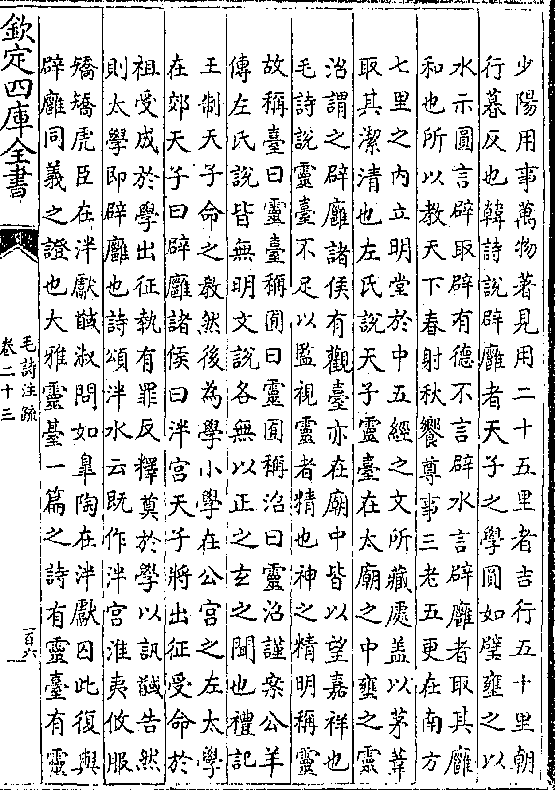 少陽用事萬物著見用二十五里者吉行五十里朝
行暮反也韓詩說辟廱者天子之學圓如璧壅之以
水示圓言辟取辟有德不言辟水言辟廱者取其廱
和也所以教天下春射秋饗尊事三老五更在南方
七里之內立明堂於中五經之文所藏處蓋以茅葦
取其潔清也左氏說天子靈臺在太廟之中壅之靈
沼謂之辟廱諸侯有觀臺亦在廟中皆以望嘉祥也
毛詩說靈臺不足以監視靈者精也神之精明稱靈
故稱臺曰靈臺稱囿曰靈囿稱沼曰靈沼謹案公羊
傳左氏說皆無明文說各無以正之玄之聞也禮記
王制天子命之敎然後為學小學在公宮之左太學
在郊天子曰辟廱諸侯曰泮宮天子將出征受命於
祖受成於學出征執有罪反釋奠於學以訊馘告然
則太學即辟廱也詩頌泮水云既作泮宮淮夷攸服
矯矯虎臣在泮獻馘淑問如臯陶在泮獻囚此復與
辟廱同義之證也大雅靈臺一篇之詩有靈臺有靈
欽定四庫全書
毛詩注疏
卷二十三
百六